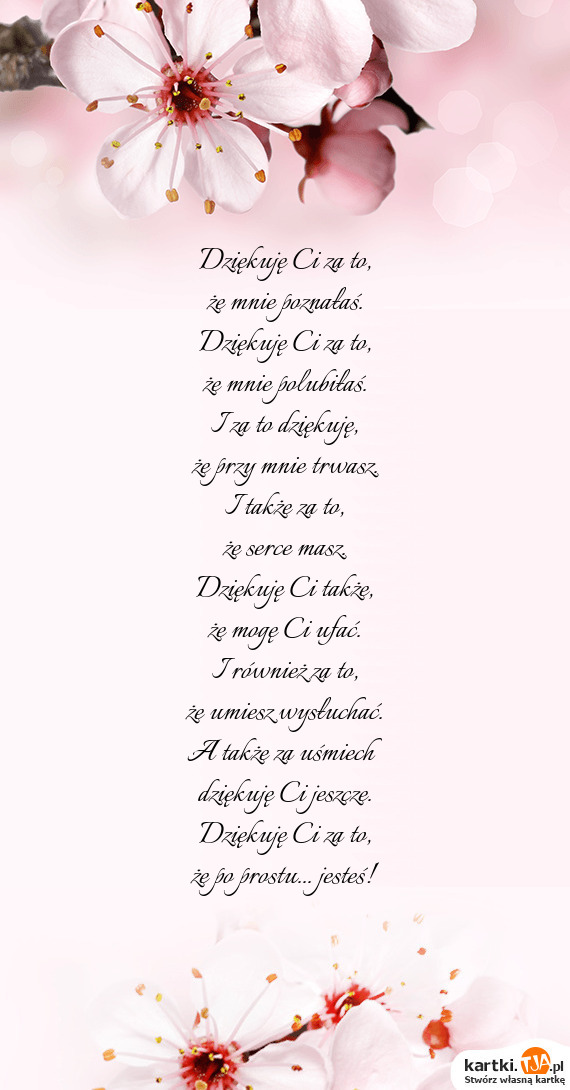 Dziękuję Ci za to,
że mnie poznałaś.
Dziękuję Ci za to,
że mnie polubiłaś.
I za to dziękuję,
że przy mnie trwasz.
I także za to,
że serce masz.
Dziękuję Ci także,
że mogę Ci ufać.
I również za to,
że umiesz wysłuchać.
A także za uśmiech
dziękuję Ci jeszcze.
Dziękuję Ci za to,
że po prostu... jesteś!
kartki.TJA.pl
Stwórz własną kartkę